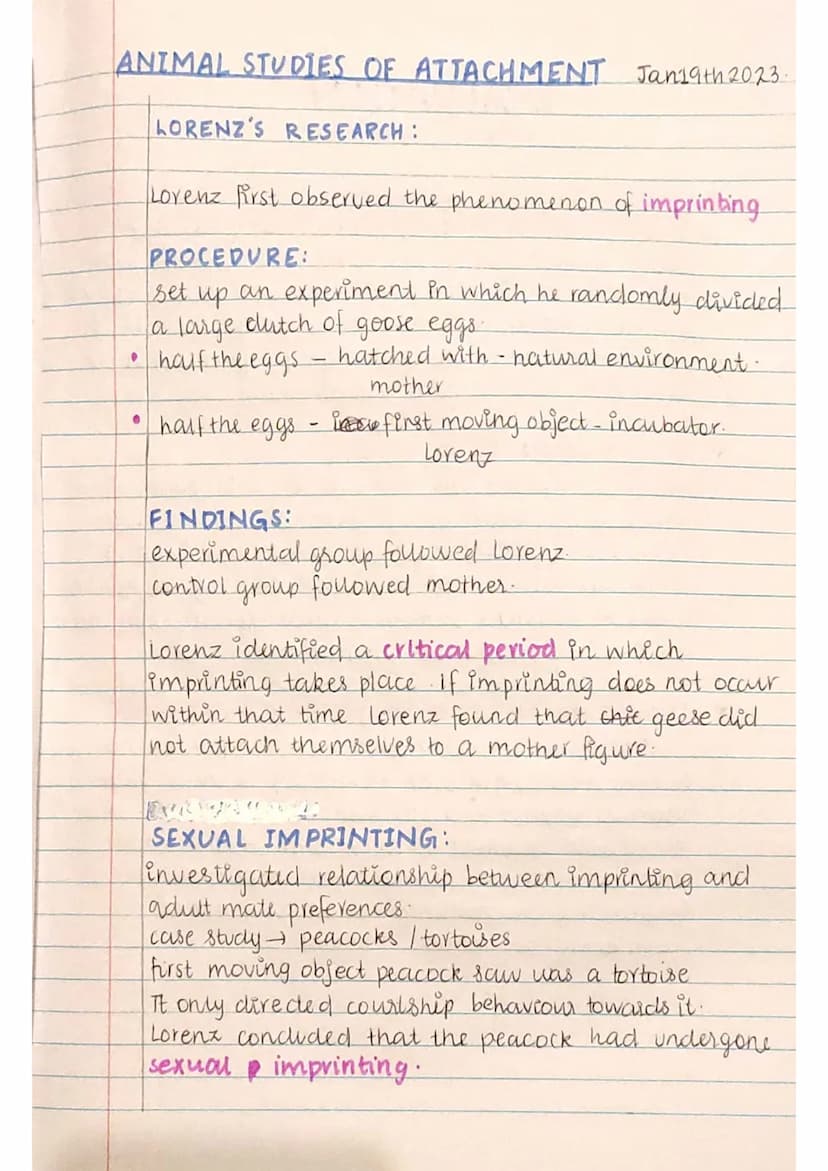 ANIMAL STUDIES OF ATTACHMENT Jan19th2023.
LORENZ'S RESEARCH:
Lorenz first observed the phenomenon of imprinting
PROCEDURE:
set up an experiment in which he randomly divided
a large clutch of goose eggs.
• half the eggs – hatched with - natural environment.
mother
• half the eggs - first moving object - incubator.
Lorenz
FINDINGS:
experimental group followed Lorenz.
control group followed mother.
Lorenz identified a critical period in which
imprinting takes place. if imprinting does not occur
within that time Lorenz found that geese did
not attach themselves to a mother figure.
SEXUAL IMPRINTING:
investigated relationship between imprinting and
adult mate preferences.
case study → peacocks / tortoises
first moving object peacock saw was a tortoise
It only directed courtship behaviour towards it.
Lorenz concluded that the peacock had undergone
sexual imprinting.